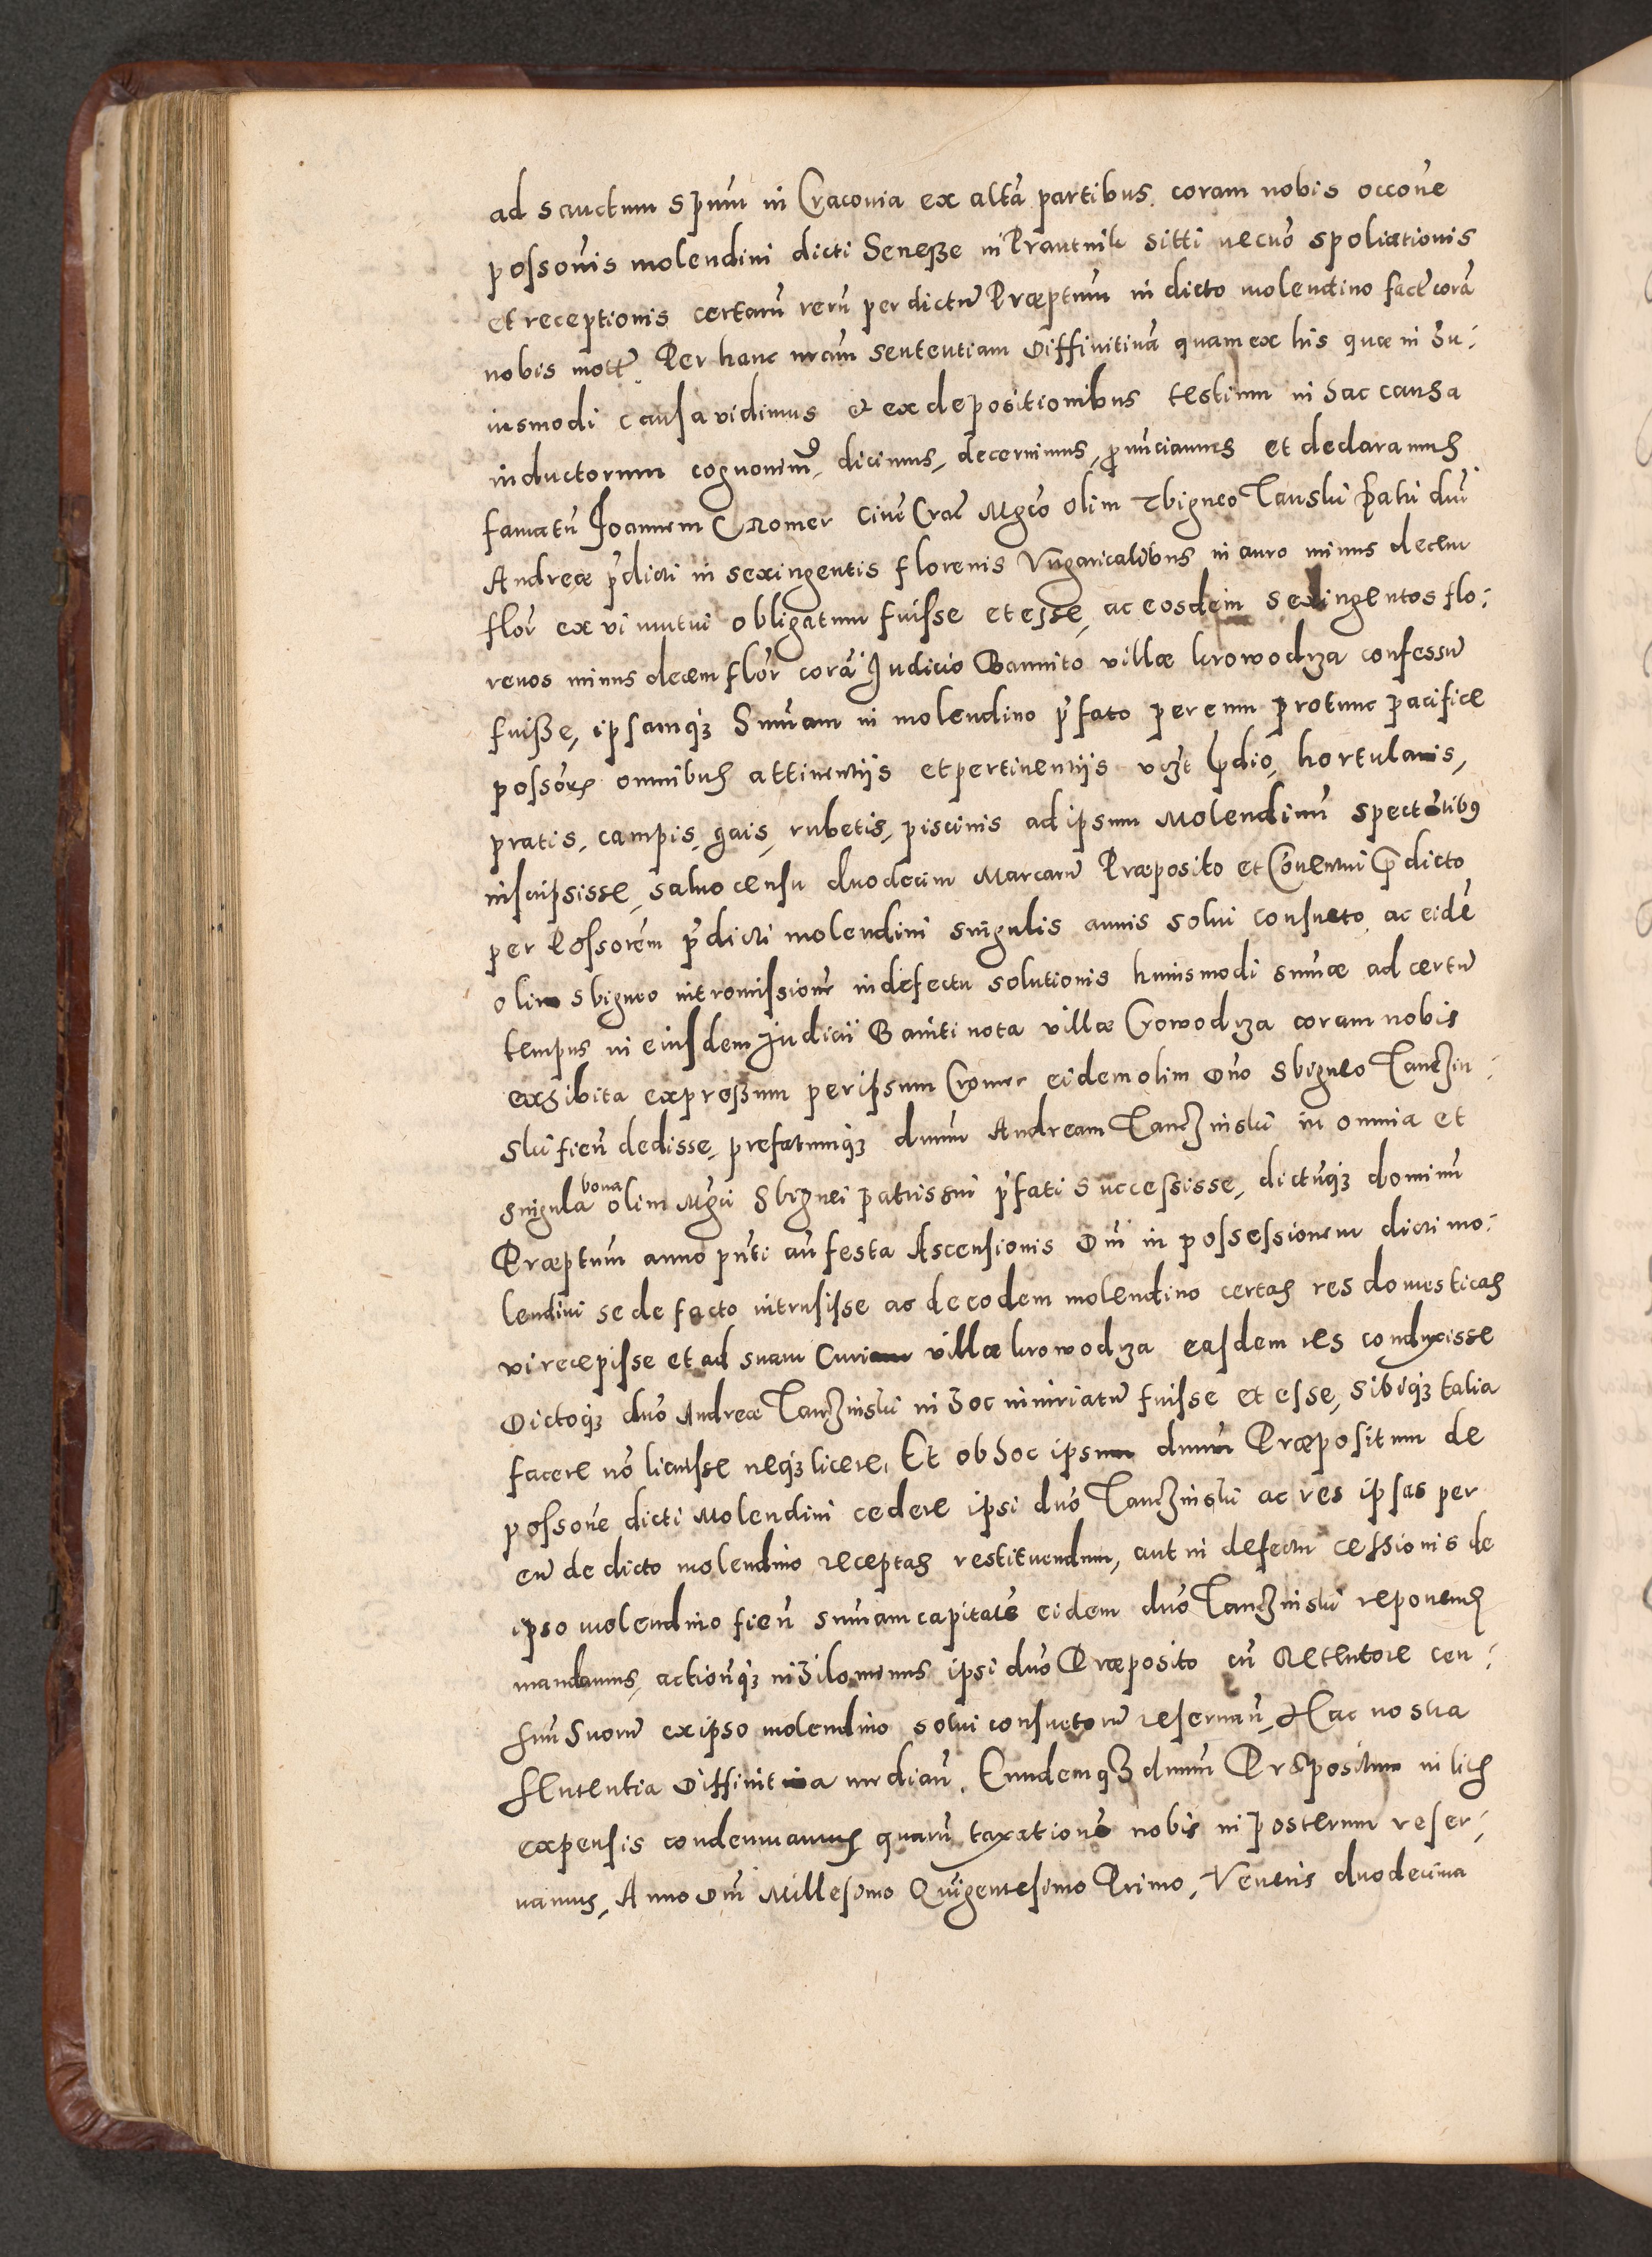 ad sanctum spūm in Cracouia ex altā partibus. coram nobis occoñe
possoñis molendini dicti Senessze in Prantnik sitti necnō spoliationis
et receptionis certarū rerū per dictū Præptum in dicto molendino fact corā
nobis mott. Per hanc nr̄am sententiam Diffinitiuā quam ex his quæ in hu-
iusmodi causa vidimus & ex depositionibus testium in hac causa
inductorum cognouimus, dicimus, decernimus, pronunciamus et declaramus
famatū Joannem Cromer ciuē Crac Mgco olim Sbigneo Tanski patri dni
Andreæ p̄dicti in sexingentis florenis Vngaricalibus in auro minus decem
flor ex vi mutui obligatum fuisse et esse, ac eosdem sexingentos flo-
renos minus decem flor corā Judicio Bannito villæ krowodrza confessū
fuisse, ipsamq3 summam in molendino p̄fato per eum protunc pacifice
possesso omnibus attinentijs et pertinentijs vczt prædio, hortulanis,
pratis, campis, gais, rubetis, piscinis ad ipsum Molendinū spectātibus
inscripsisse, saluo censu duodecim Marcarū Præposito et Conuentui prædicto
per possorem p̄dicti molendini singulis annis solui consueto, ac eidē
olim Sbigneo intromissionē in defectu solutionis huiusmodi sum̄æ ad certū
tempus in eiusdem Judicij Baniti nota villæ Crowodrza coram nobis
exhibita expressum per ipsum Cromer eidem olim Dn̄o Sbigneo Tanczin-
ski fien̄ dedisse, prefatumq3 dnum Andream Tanczinski in omnia et
singula bona olim Mgci Sbignei patris sui p̄fati successisse, dictūq3 dominū
Præptum anno pn̄ti an̄ festa Ascensionis Dn̄i in possessionem dicti mo-
lendini se de facto intrusisse ac de eodem molendino certas res domesticas
vi recepisse et ad suam Curiam villæ krowodrza easdem res conduxisse
Dictoq3 dn̄o Andreæ Tanczinski in hoc iniuriatū fuisse et esse, sibiq3 talia
facere nō licuisse neq3 licere, Et ob hoc ipsum dnum Præpositum de
possone dicti Molendini cedere ipsi dn̄o Tanczinski ac res ipsas per
eū de dicto molendino receptas restituendum, aut in defectu cessionis de
ipso molendino fien̄ sum̄am capitalē eidem dn̄o Tanczinski reponend
mandamus, actionēq3 nihilominus ipsi dn̄o Præposito cū Retentore cen-
suū suorū ex ipso molendino solui consuetorū reseruan̄, Hac nostra
sententia Diffinitiua mediañ, Eundemq3 dnum Præpositum in litis
expensis condemnamus quarū taxationē nobis in posterum reser-
uamus, Anno Dn̄i Millesimo Quingentesimo Primo, Veneris duodecima